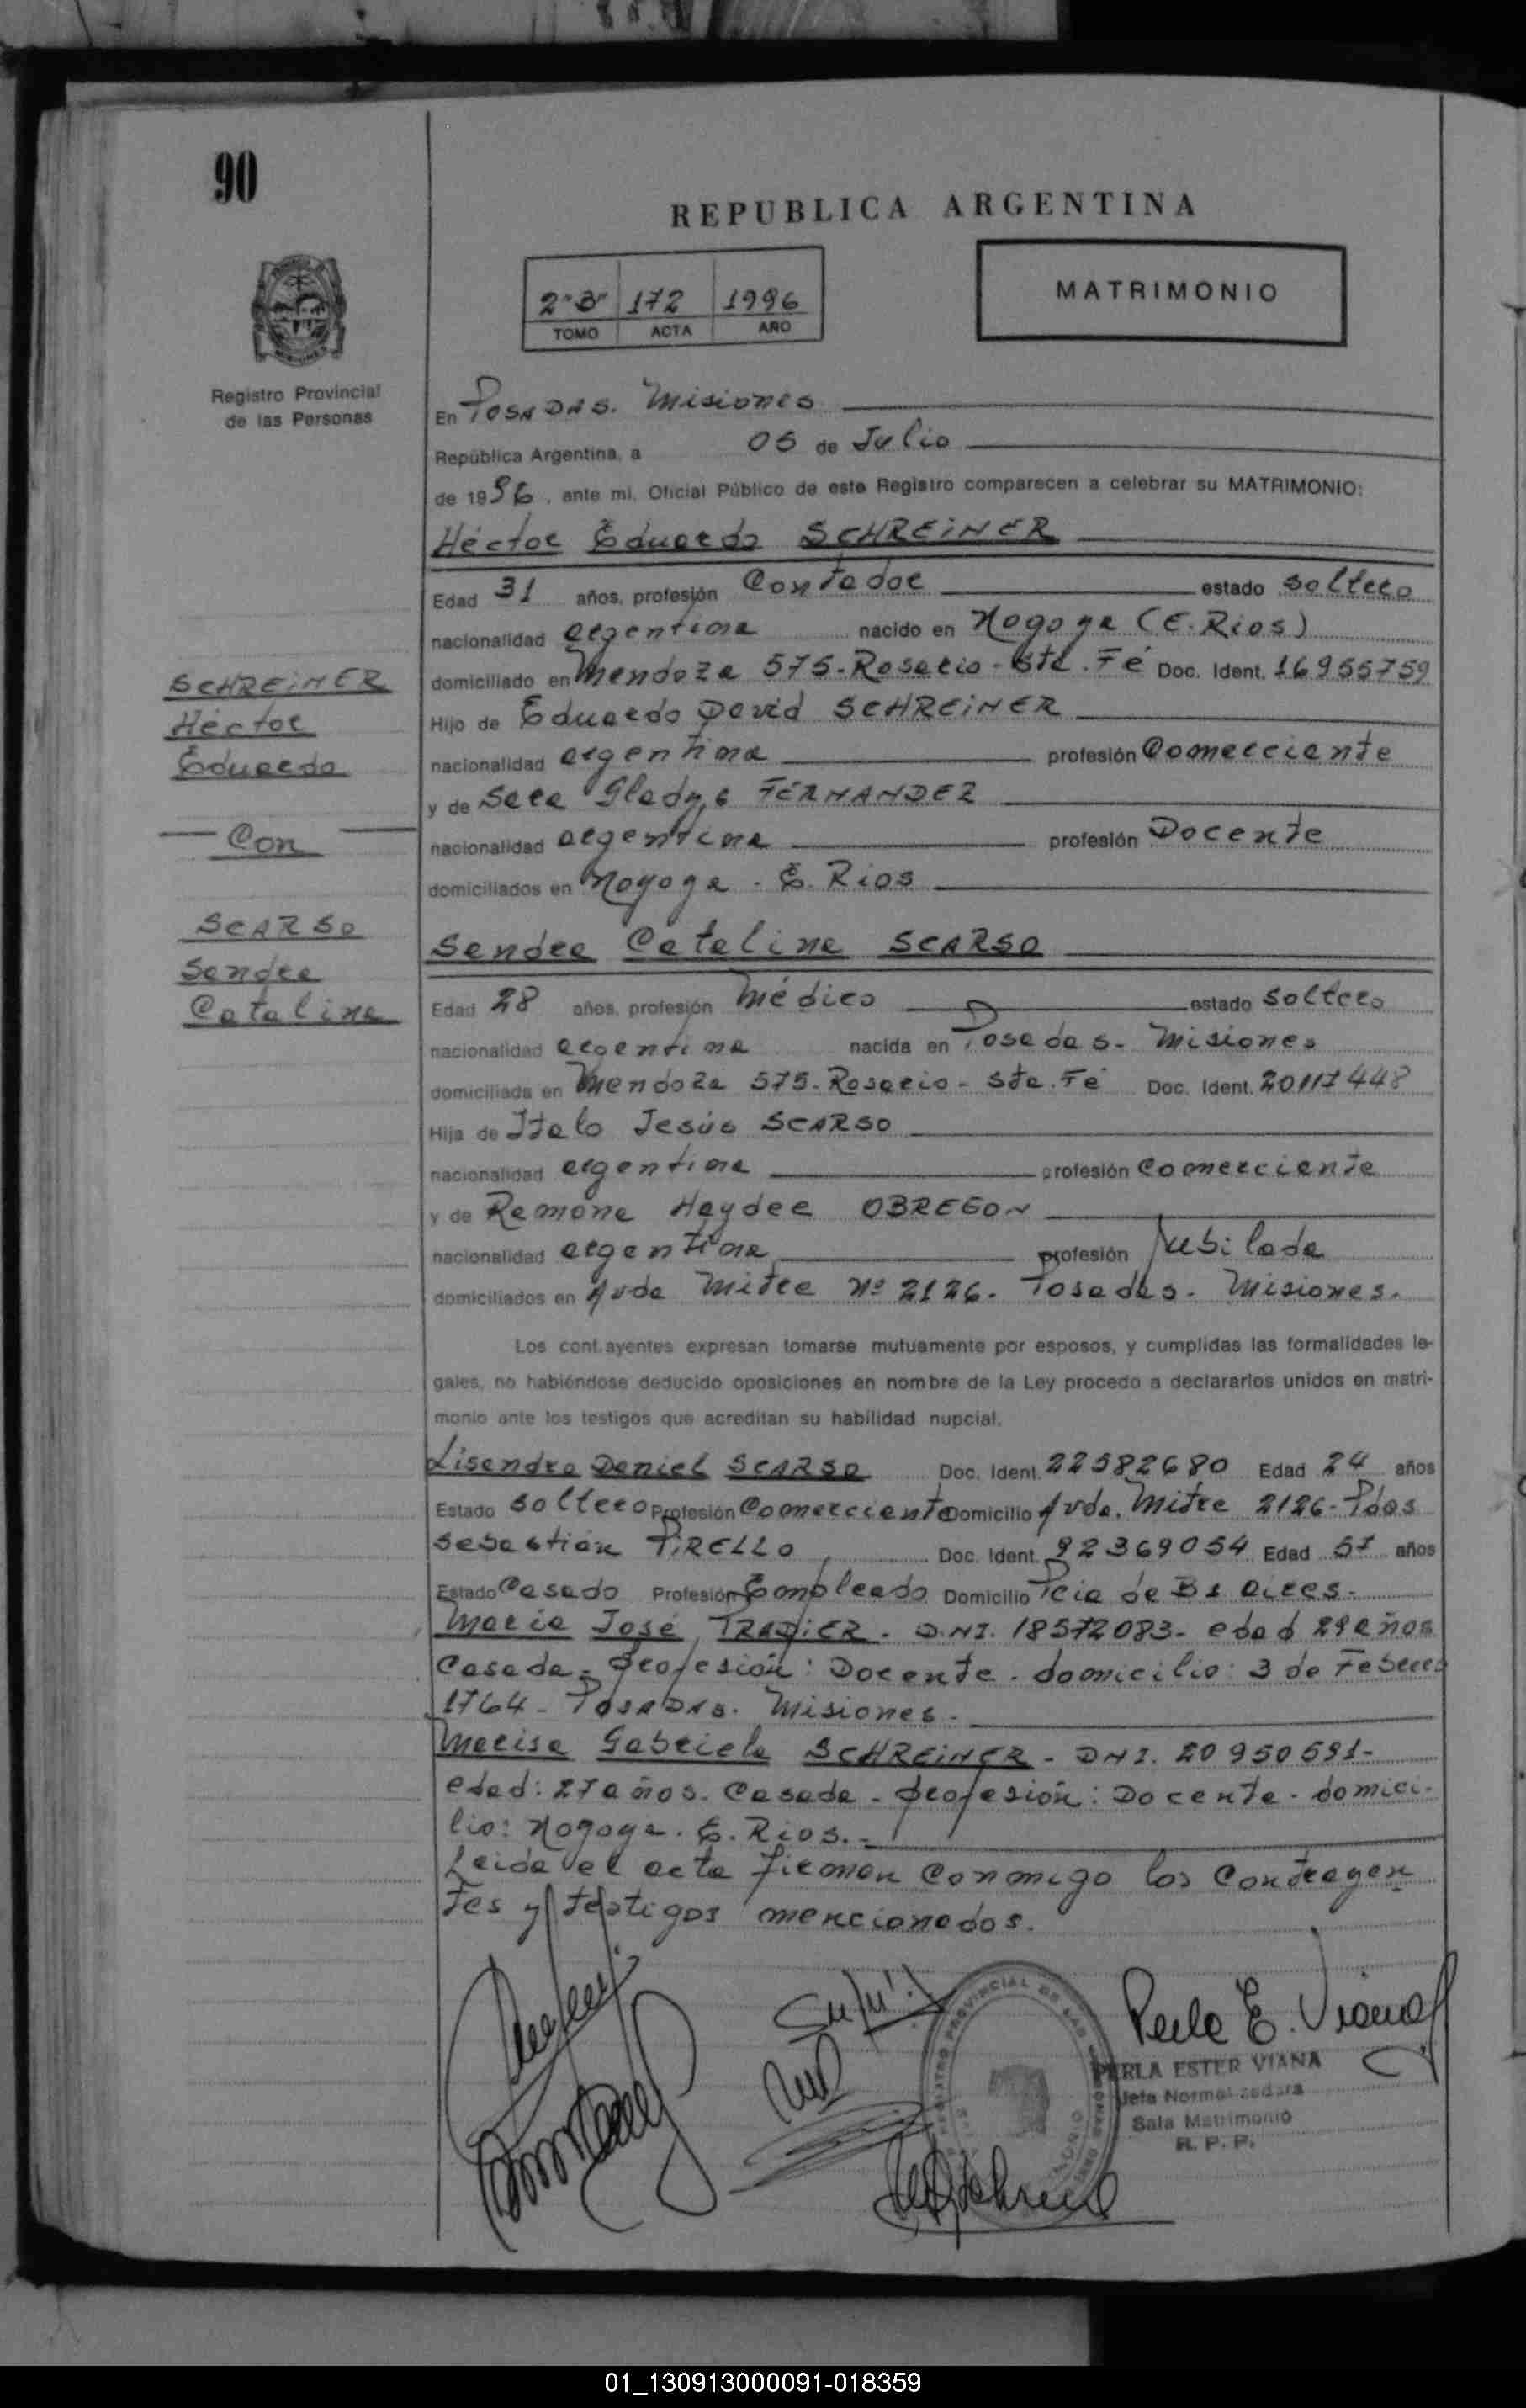 90
REPUBLICA ARGENTINA
2"B" 172 1996
TOMO ACTA AÑO
MATRIMONIO
Registro Provincial
de las Personas
En Posadas. Misiones
República Argentina, a 05 de Julio
de 1996, ante mi, Oficial Público de este Registro comparecen a celebrar su MATRIMONIO:
Héctor Eduardo SCHREINER
Edad 31 años, profesión Contador estado soltero
nacionalidad argentina nacido en Nogoya (E. Rios)
domiciliado en Mendoza 575-Rosario-Sta. Fé Doc. Ident. 16955759
Hijo de Eduardo David SCHREINER
nacionalidad argentina profesión Comerciante
y de Sara Gladys FERNANDEZ
nacionalidad argentina profesión Docente
domiciliados en Nogoya. E. Rios
SCHREINER
Héctor
Eduardo
Con
SCARSO
Sandra
Catalina
Sandra Catalina SCARSO
Edad 28 años, profesión Médico estado soltero
nacionalidad argentina nacida en Posadas. Misiones
domiciliada en Mendoza 575-Rosario-Sta. Fé Doc. Ident. 20117448
Hija de Italo Jesús SCARSO
nacionalidad argentina profesión Comerciante
y de Ramona Haydee OBREGON
nacionalidad argentina profesión Jubilada
domiciliados en Avda Mitre Nº 2126. Posadas. Misiones.
Los contrayentes expresan tomarse mutuamente por esposos, y cumplidas las formalidades le-
gales, no habiéndose deducido oposiciones en nombre de la Ley procedo a declararlos unidos en matri-
monio ante los testigos que acreditan su habilidad nupcial.
Lisandro Daniel SCARSO Doc. Ident. 22582680 Edad 24 años
Estado soltero Profesión Comerciante Domicilio Avda. Mitre 2126-Pdas
Sebastián PIRELLO Doc. Ident. 92369054 Edad 57 años
Estado Casado Profesión Empleado Domicilio Pcia de Bs Aires.
Maria José TRADIER. D.N.I. 18572083- edad 29 años
Casada- profesión: Docente. domicilio: 3 de Febrero
1764- Posadas. Misiones.
Marisa Gabriela SCHREINER - DNI. 20950591-
edad: 27 años. Casada - profesión: Docente. domici-
lio: Nogoya. E. Rios.-
Leida el acta firman conmigo los Contrayen-
tes y testigos mencionados.
Perla E. Viana
PERLA ESTER VIANA
Jefa Normalizadora
Sala Matrimonio
R. P. P.
01_130913000091-018359